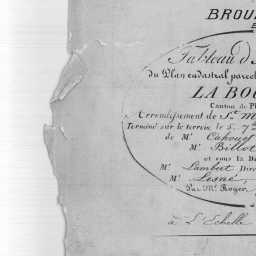 BROU
Tableau d'
du Plan cadastral parcel
LA BO
Canton de Pl
Arrondissement de St. M
Terminé sur le terrein le 5. 7
de Mr. Cahouet
Mr. Billot
et sous la D
Mr. Lambert Dire
Mr. Lesné
Par Mr. Roger,
à L'Echelle